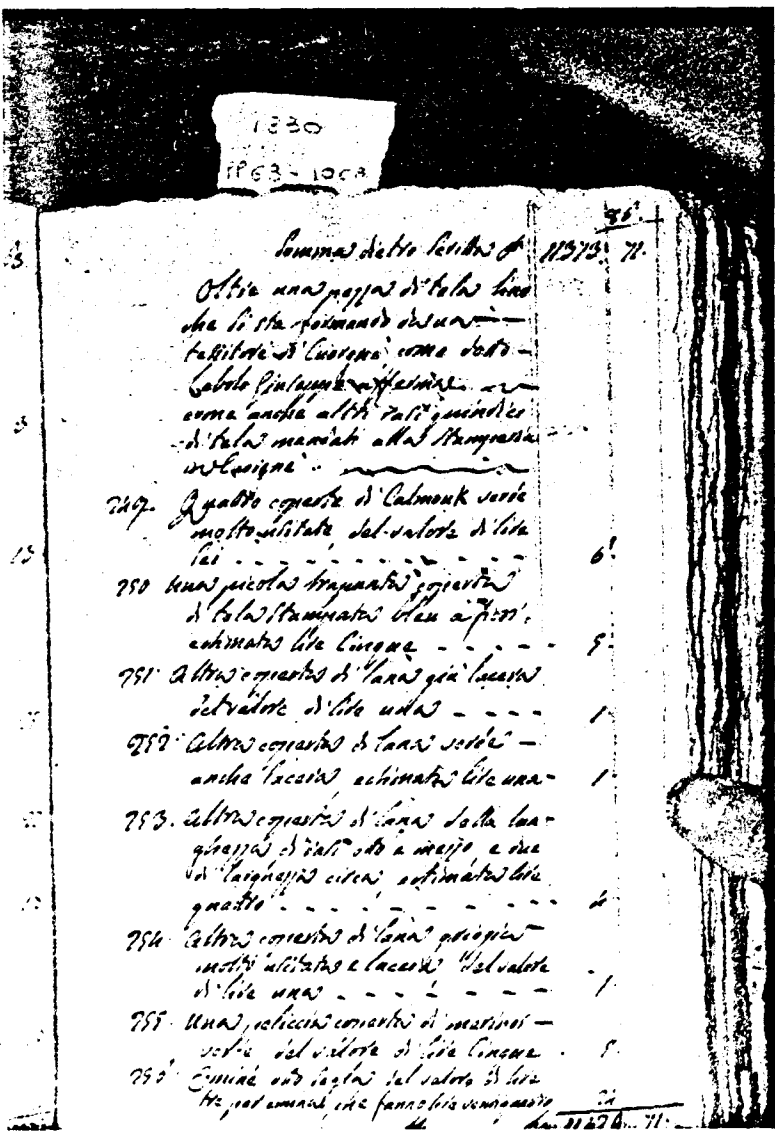 1830
1863-1063
86.
Somma dietro scritta 11373. 71.
Oltre una pezza di tela lino
che si sta formando da un
tessitore di Cuorgnè come detto
Giuseppe afferma
come anche altri rasi quindici
di tela mandati alla Stamperia
249. Quattro coperte di Calmouk verde
molto usitate del valore di lire
sei - - - - - - - - 6.
250 Una picola trapunta coperta
di tela Stampata bleu a fiori,
estimata lire Cinque - - - - - 5.
251. Altra coperta di lana già lacera
del valore di lire una - - - - 1.
252. Altra coperta di lana verde —
anche lacera, estimata lire una - 1.
253. Altra coperta di lana della lun-
ghezza di rasi otto e mezzo e due
di larghezza circa, estimata lire
quattro - - - - - - - - 4.
254. Altra coperta di lana griggia
molto usitata e lacera del valore
di lire una - - - - - - 1.
255. Una peliccia coperta di merinos —
verde del valore di lire Cinque - 5.
256. Emine otto segla del valore di lire
tre per emina, che fanno lire ventiquattro 24
71.